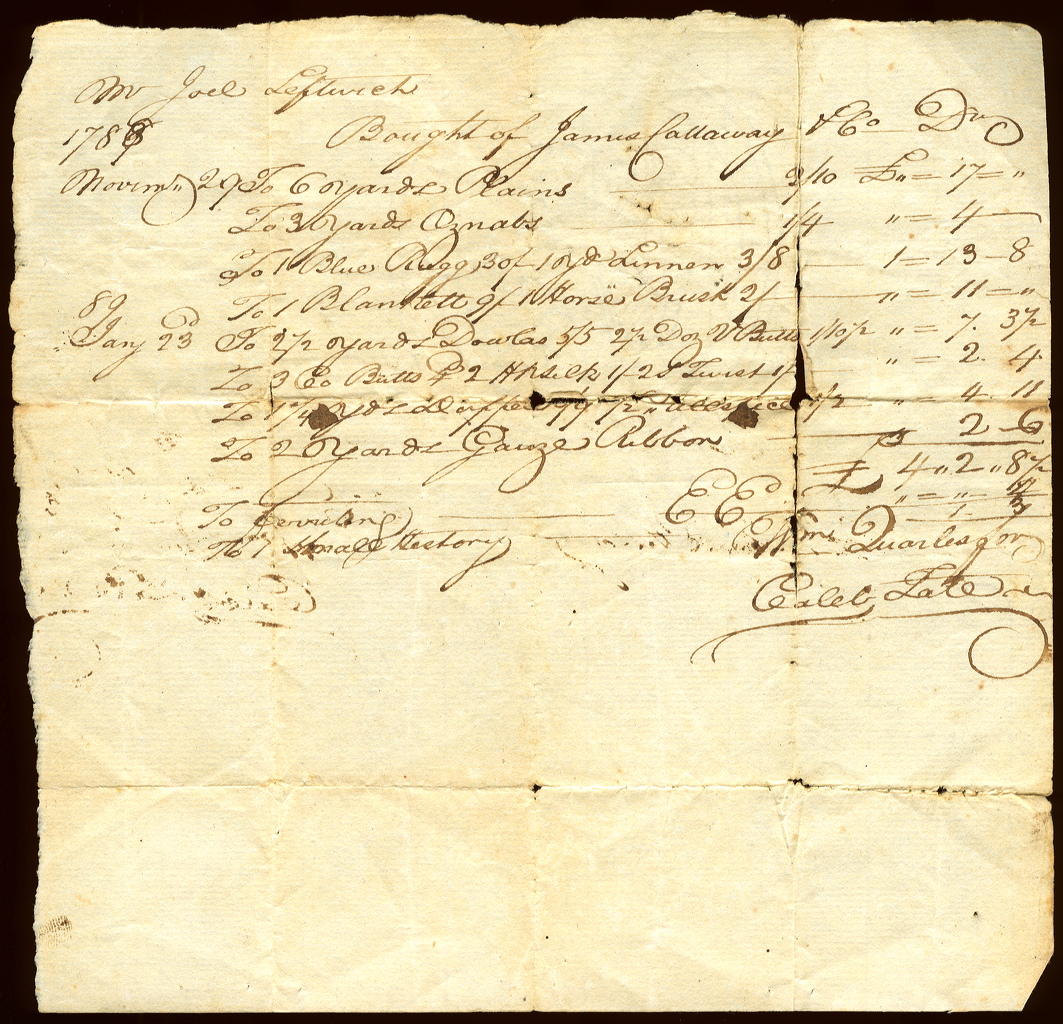 Mr Joel Leftwich
1788 Bought of James Callaway & Co Dr
Novemr 29 To 6 Yards Plains 2/10 £ " = 17 = "
To 3 Yards Oznabs 1/4 " = 4
To 1 Blue Rugg 30/ 1 Yd Linnen 3/8 1 = 13 - 8
To 1 Blankett 9/ 1 Horse Brush 2/ " = 11 = "
89
Jany 23 To 2 1/2 Yards Dowlas 5/5 2 1/2 Doz V Butts 1/10 1/2 " = 7. 3 1/2
To 3 Co Butts 2 Hk Silk 1/ 2 d Twist 1/ " = 2. 4
To 1 1/4 Yds 1/2 " 1/2 " = 4. 11
To 2 Yards Gauze Ribbon 2 6
£ 4 " 2 " 8 1/2
To " = "
To 1 Small History 1
EE Wm Quarles for
Caleb Tate